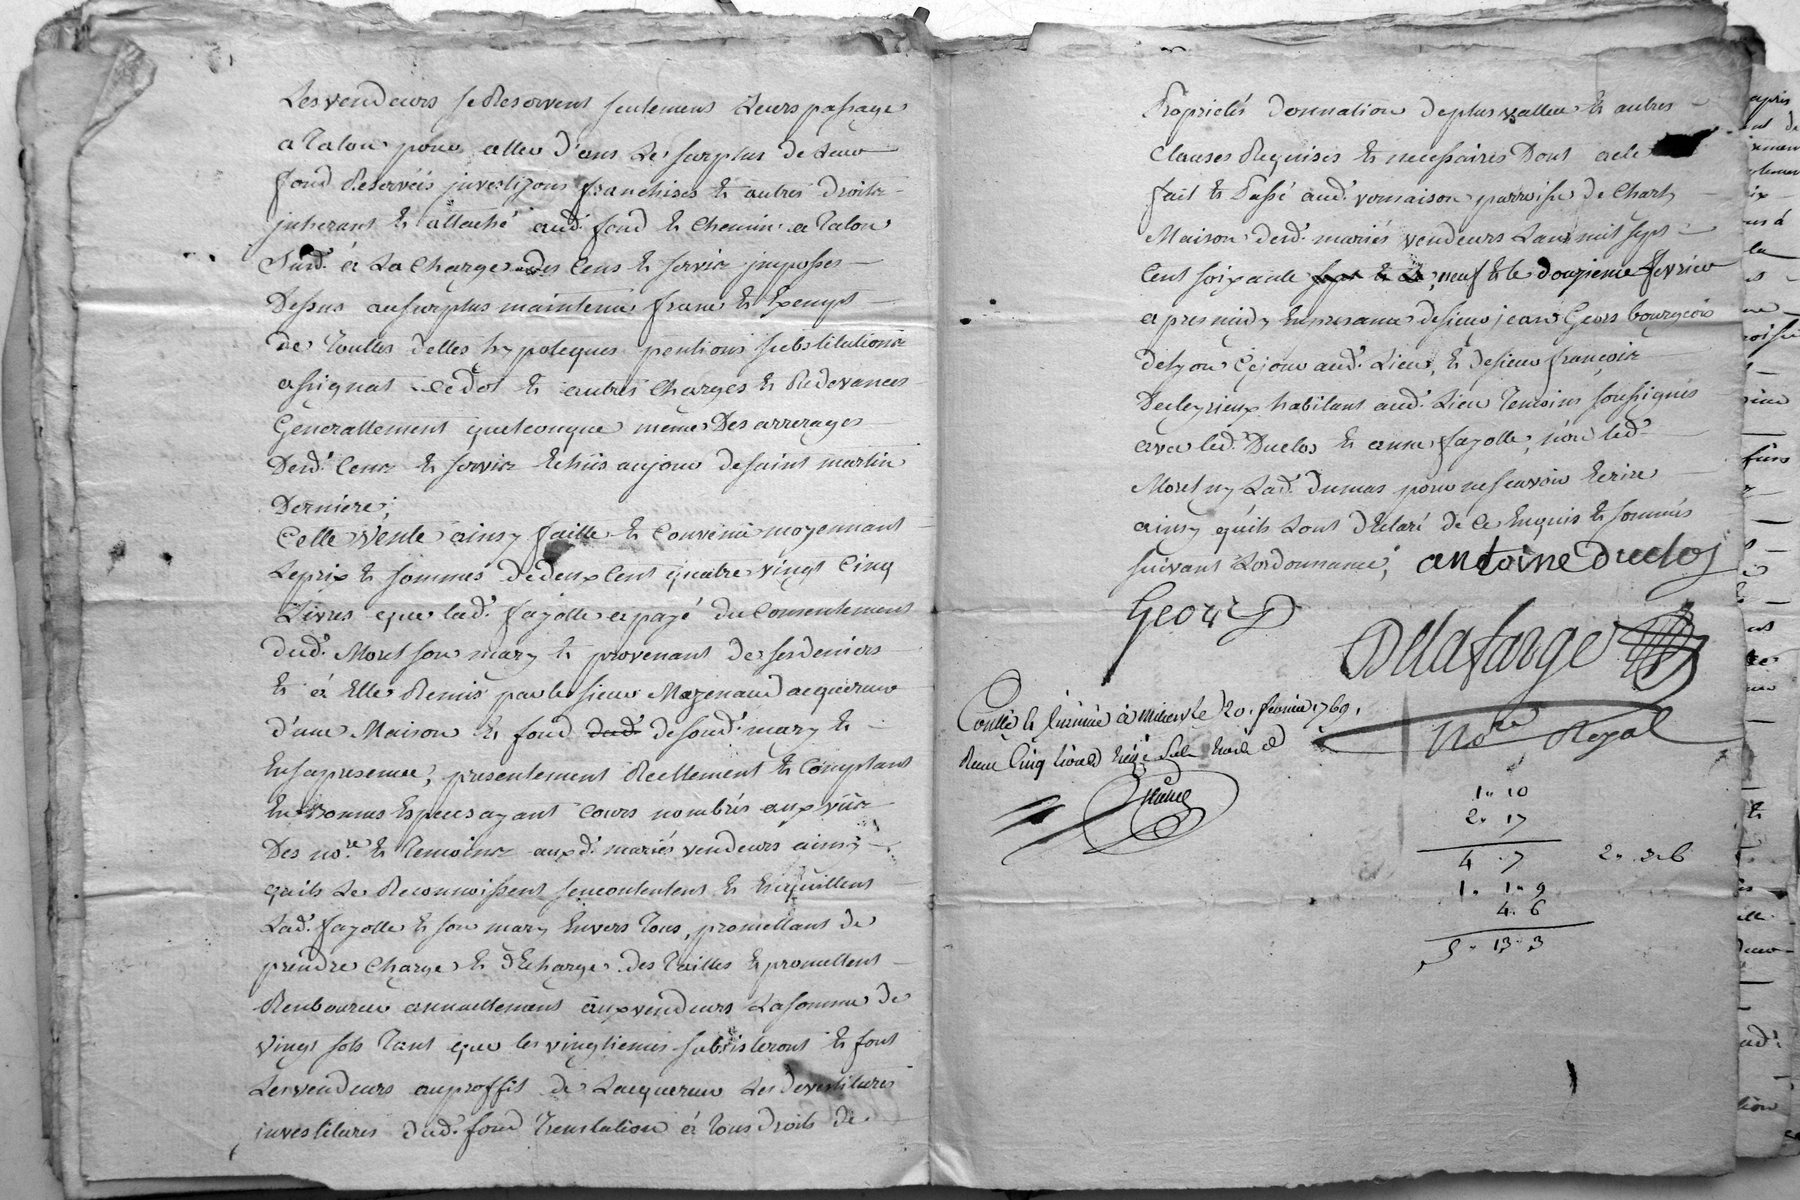 Les vendeurs se Reservent seulement Leurs passage
a Talon pour aller dans Le surplus de Leur
fond Reservéés franchises & autres droits
inherant & attaché aud. fond & Chemin a Talon
Susd. á La Charge des Cens & servis imposses
Dessus au surplus maintenu franc & Exempt
de Toutes dettes hypoteques pentions substitutions
assignat de dot & autres Charges & Redevances
Generallement quelconque même Des arrerages
Desd. Cens & servis Echûs au jour de saint martin
Derniere;
Cette Vente ainsy faitte & Convenuë moyennant
Le prix & sommes de deux Cent quatre vingt Cinq
Livres que lad. fayolle a payé du Consentement
dud. Moret son mary & provenant de ses deniers
& á Elle Remis par le sieur Mazenaud acquereur
d'une Maison & fond dud. desond. mary &
En sa presence, presentement Reellement & Comptant
En bonnes Especes ayant Cours nombrés aux vûës
Des no.re & Temoins auxd. mariés vendeurs ainsy
qu'ils Le Reconnoissent sen contentent & En quittent
Lad. fayolle & son mary Envers Tous, promettans de
prendre Charge & dEcharge des Tailles & promettent
Rembourcer annuellement aux vendeurs La somme de
vingt sols Tant que les vingtiemes subsisteront & font
Les vendeurs au proffit de L'acquereur Les devestitures
investitures dud. fond Translation á Tous droits de
Proprietés donnation de plus valleu & autres
Clauses Requises & necessaires Dont acte
fait & Passé aud. parroisse de Chart
Maison desd. mariés vendeurs L'an mil sept
Cent soixante neuf & le douzieme fevrier
apres midy En presance de sieur jean Geors bourgeois
de Lyon aud. Lieu, & de sieur françois
habitant aud. Lieu Temoins soussignés
avec led. Duclos & anne fayolle, non led.
Moret ny Lad. dumas pour ne sçavoir Ecrire
ainsy qu'ils L'ont dEclaré de Ce Enquis & sommés
suivant L'ordonnance; antoine duclos
Geors
Dellafarge
No.re Royal
Conllé & Insinué á le 20. fevrier 1769.
Reçu Cinq livres treize sols trois d
1. 10
2. 17
4. 7
2. 3. 6
1. 1. 9
4. 6
5. 13. 3